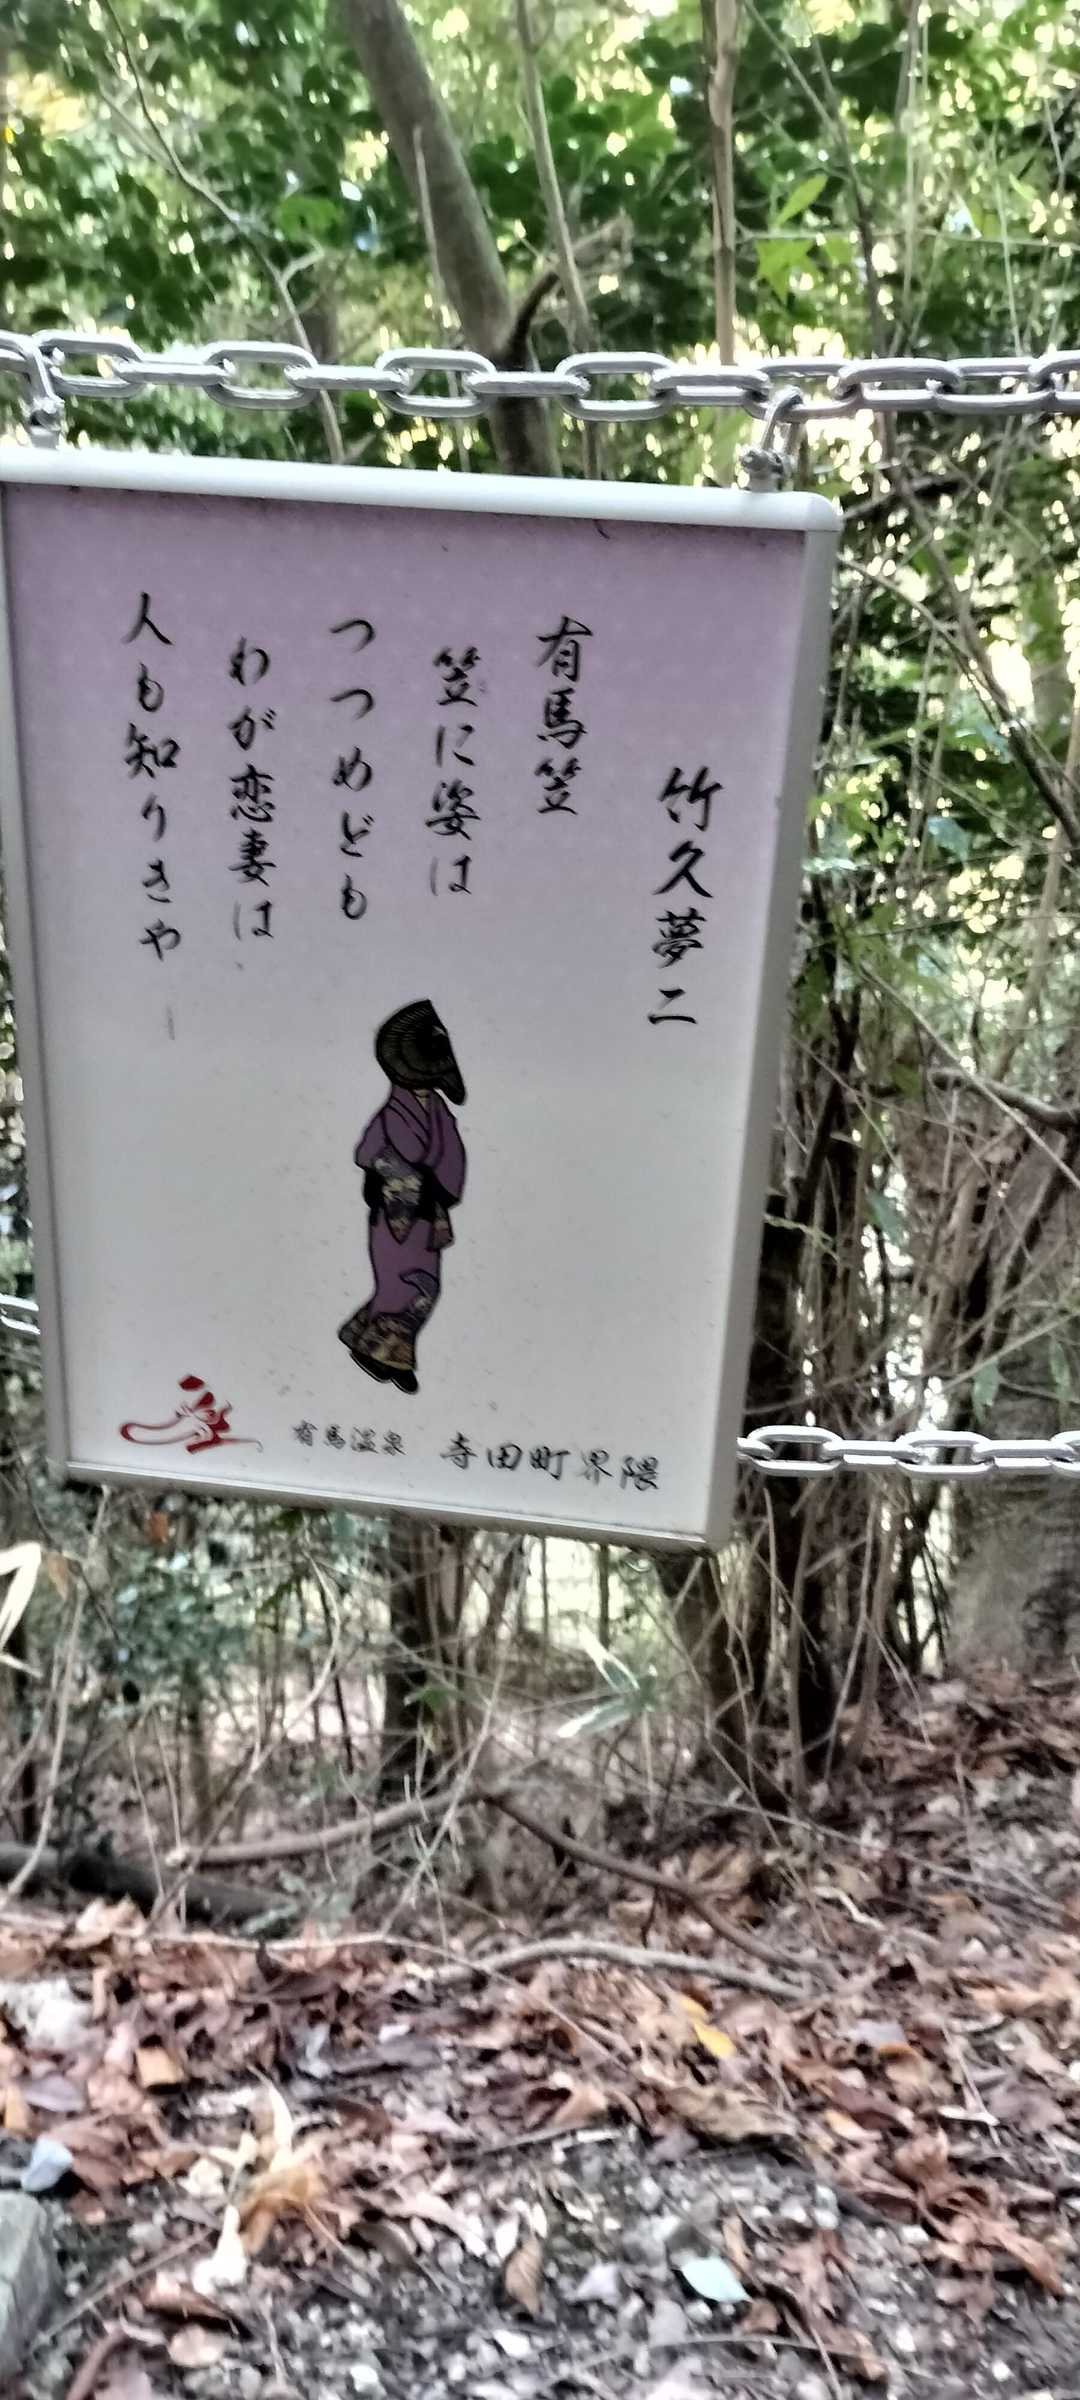 竹久夢二
有馬笠
笠に姿は
つつめども
わが恋妻は
人も知りきや
有馬温泉 寺田町界隈